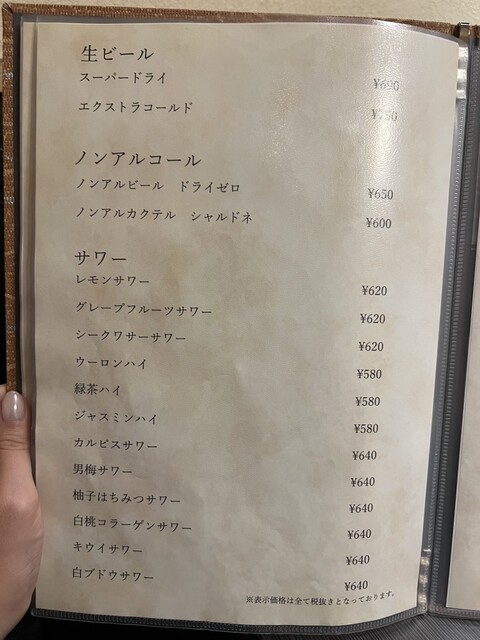 生ビール
スーパードライ ¥690
エクストラコールド
ノンアルコール
ノンアルビール ドライゼロ ¥650
ノンアルカクテル シャルドネ ¥600
サワー
レモンサワー ¥620
グレープフルーツサワー ¥620
シークワサーサワー ¥620
ウーロンハイ ¥580
緑茶ハイ ¥580
ジャスミンハイ ¥580
カルピスサワー ¥640
男梅サワー ¥640
柚子はちみつサワー ¥640
白桃コラーゲンサワー ¥640
キウイサワー ¥640
白ブドウサワー ¥640
※表示価格は全て税抜きとなっております。